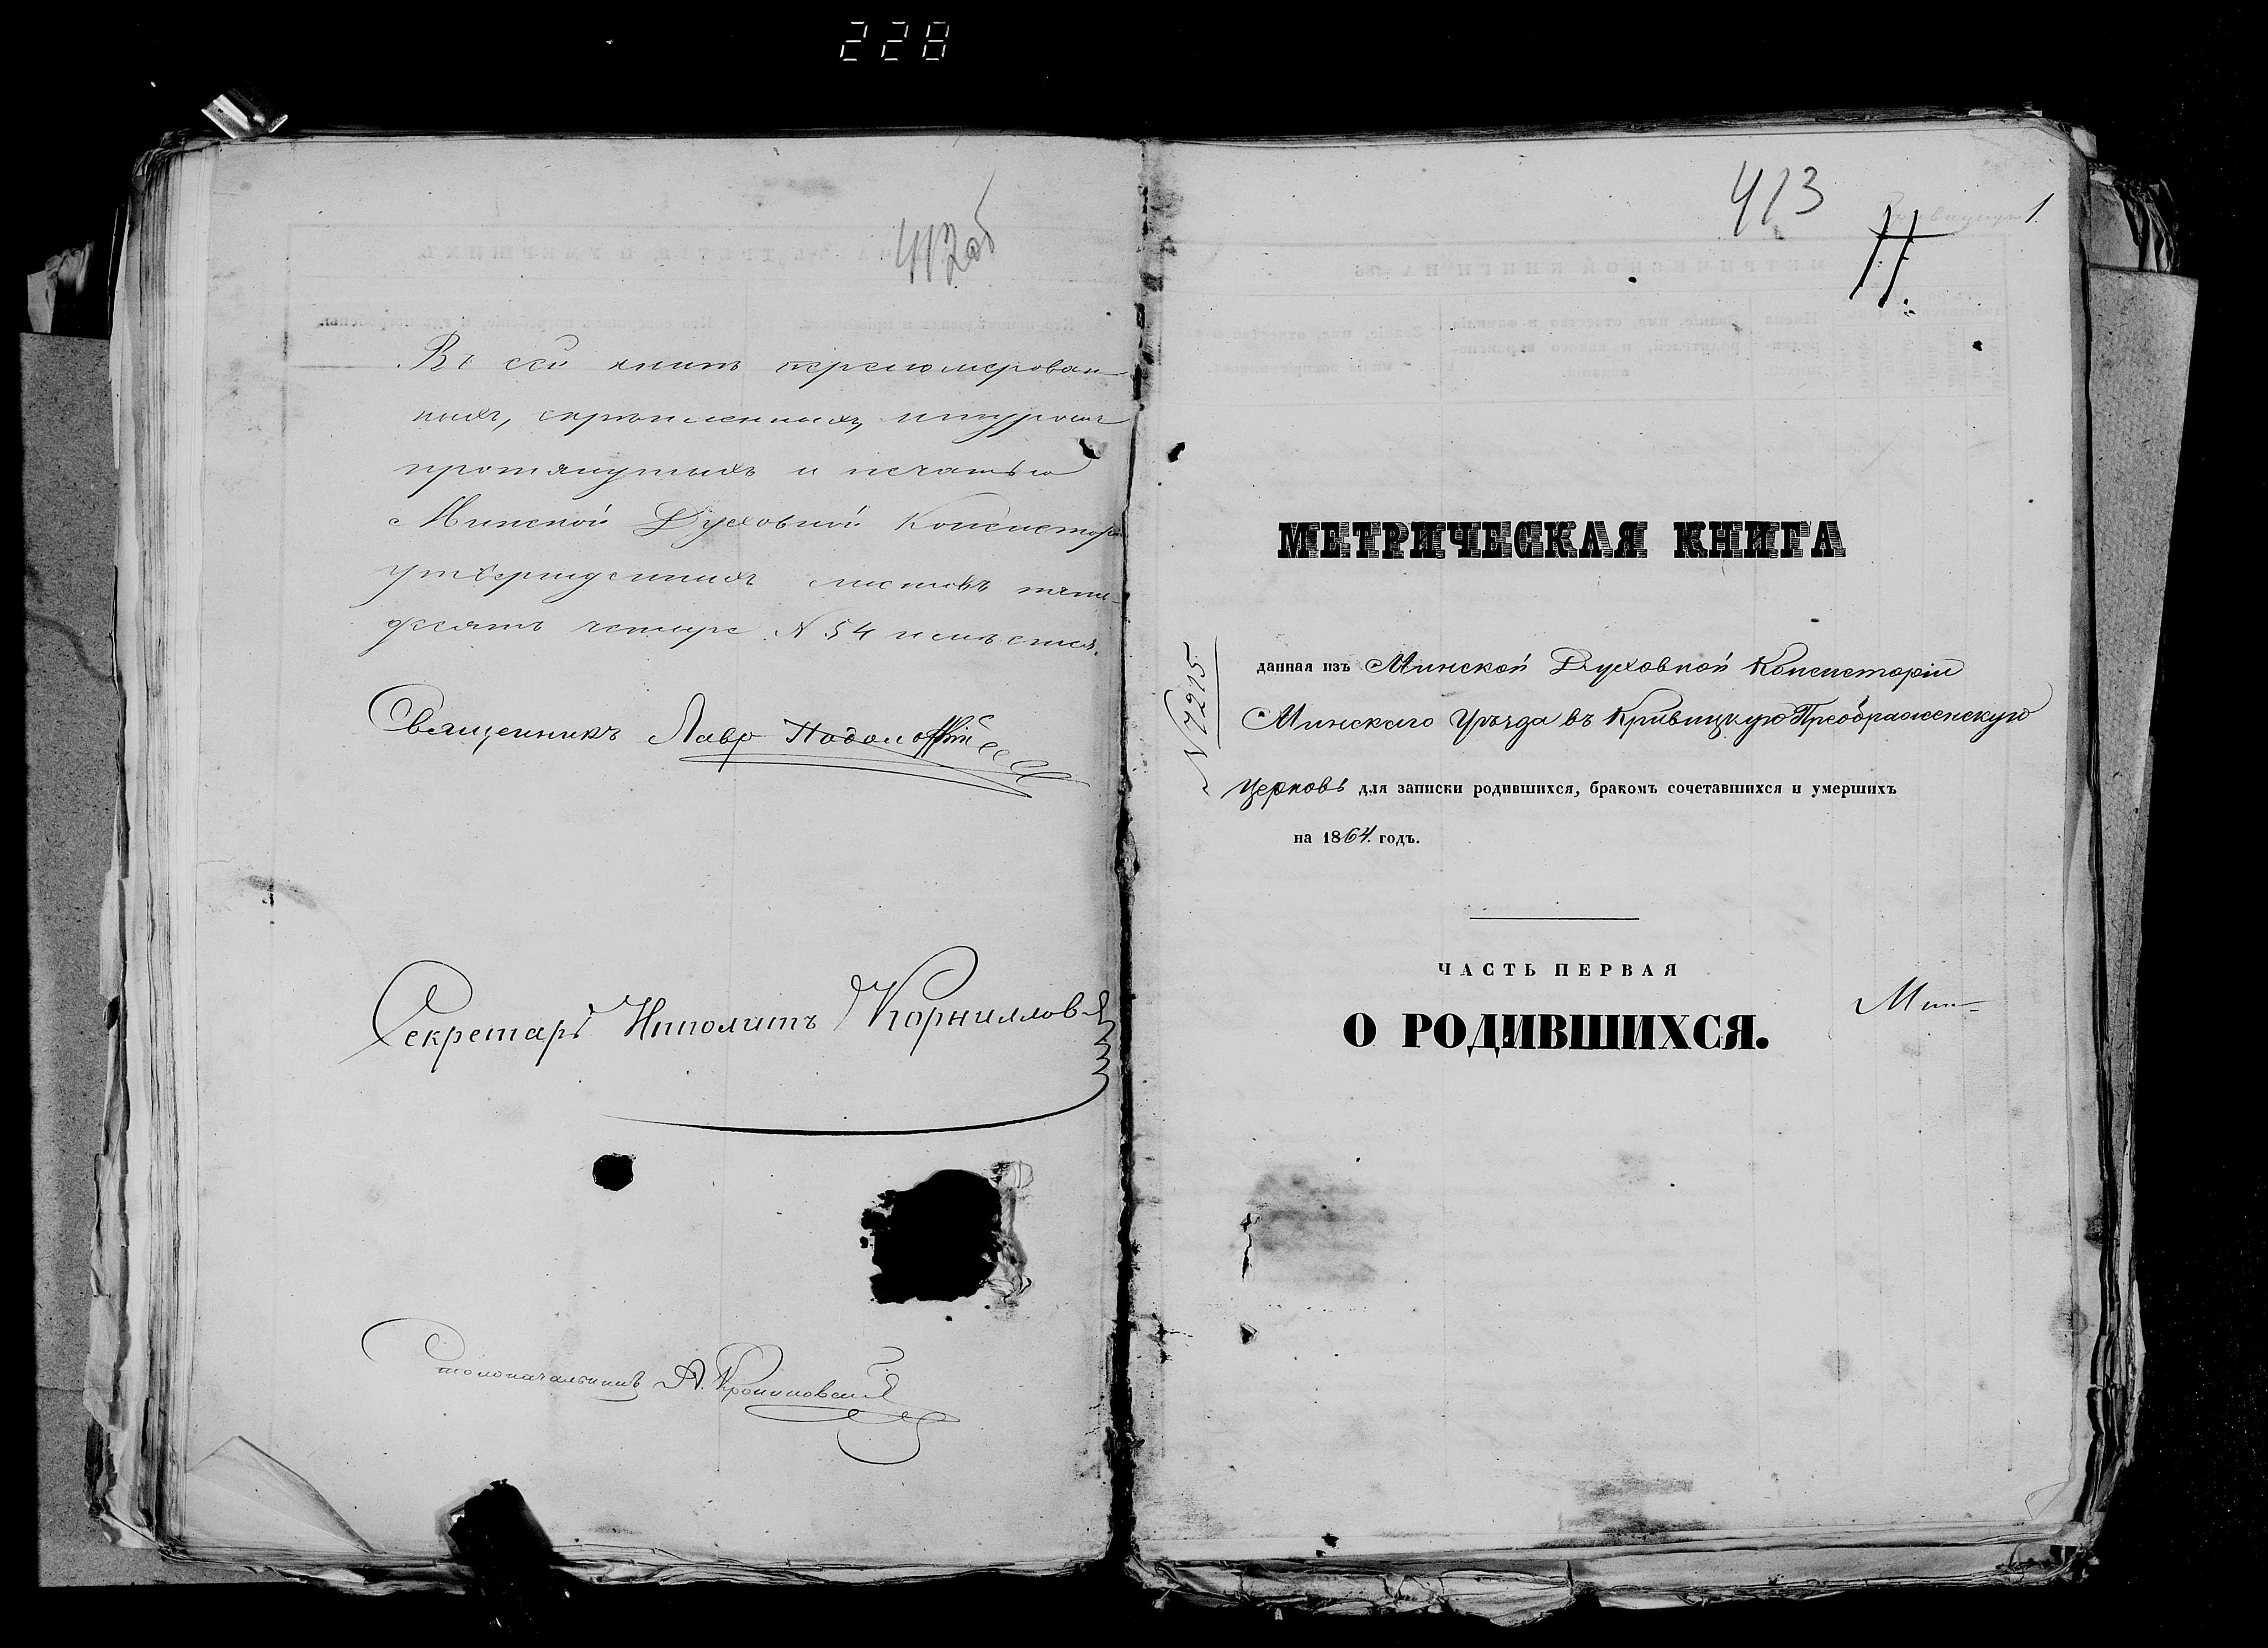 228
412 об
Въ сей книгѣ перенумерован-
ныхъ, скрѣпленныхъ, шнуромъ
протянутыхъ и печатью
Минской Духовной Консисторіи
утвержденныхъ листовъ пять-
десятъ четыре № 54 имѣется.
Священникъ Лавр
Секретарь Иполитъ Корниллов
Столоначальникъ А.
413
1.
МЕТРИЧЕСКАЯ КНИГА
№ 7215
данная изъ Минской Духовной Консисторіи
Минскаго Уѣзда въ Кривицкую Преображенскую
Церковь для записки родившихся, бракомъ сочетавшихся и умершихъ
на 1864. годъ.
ЧАСТЬ ПЕРВАЯ
О РОДИВШИХСЯ.
Мин-